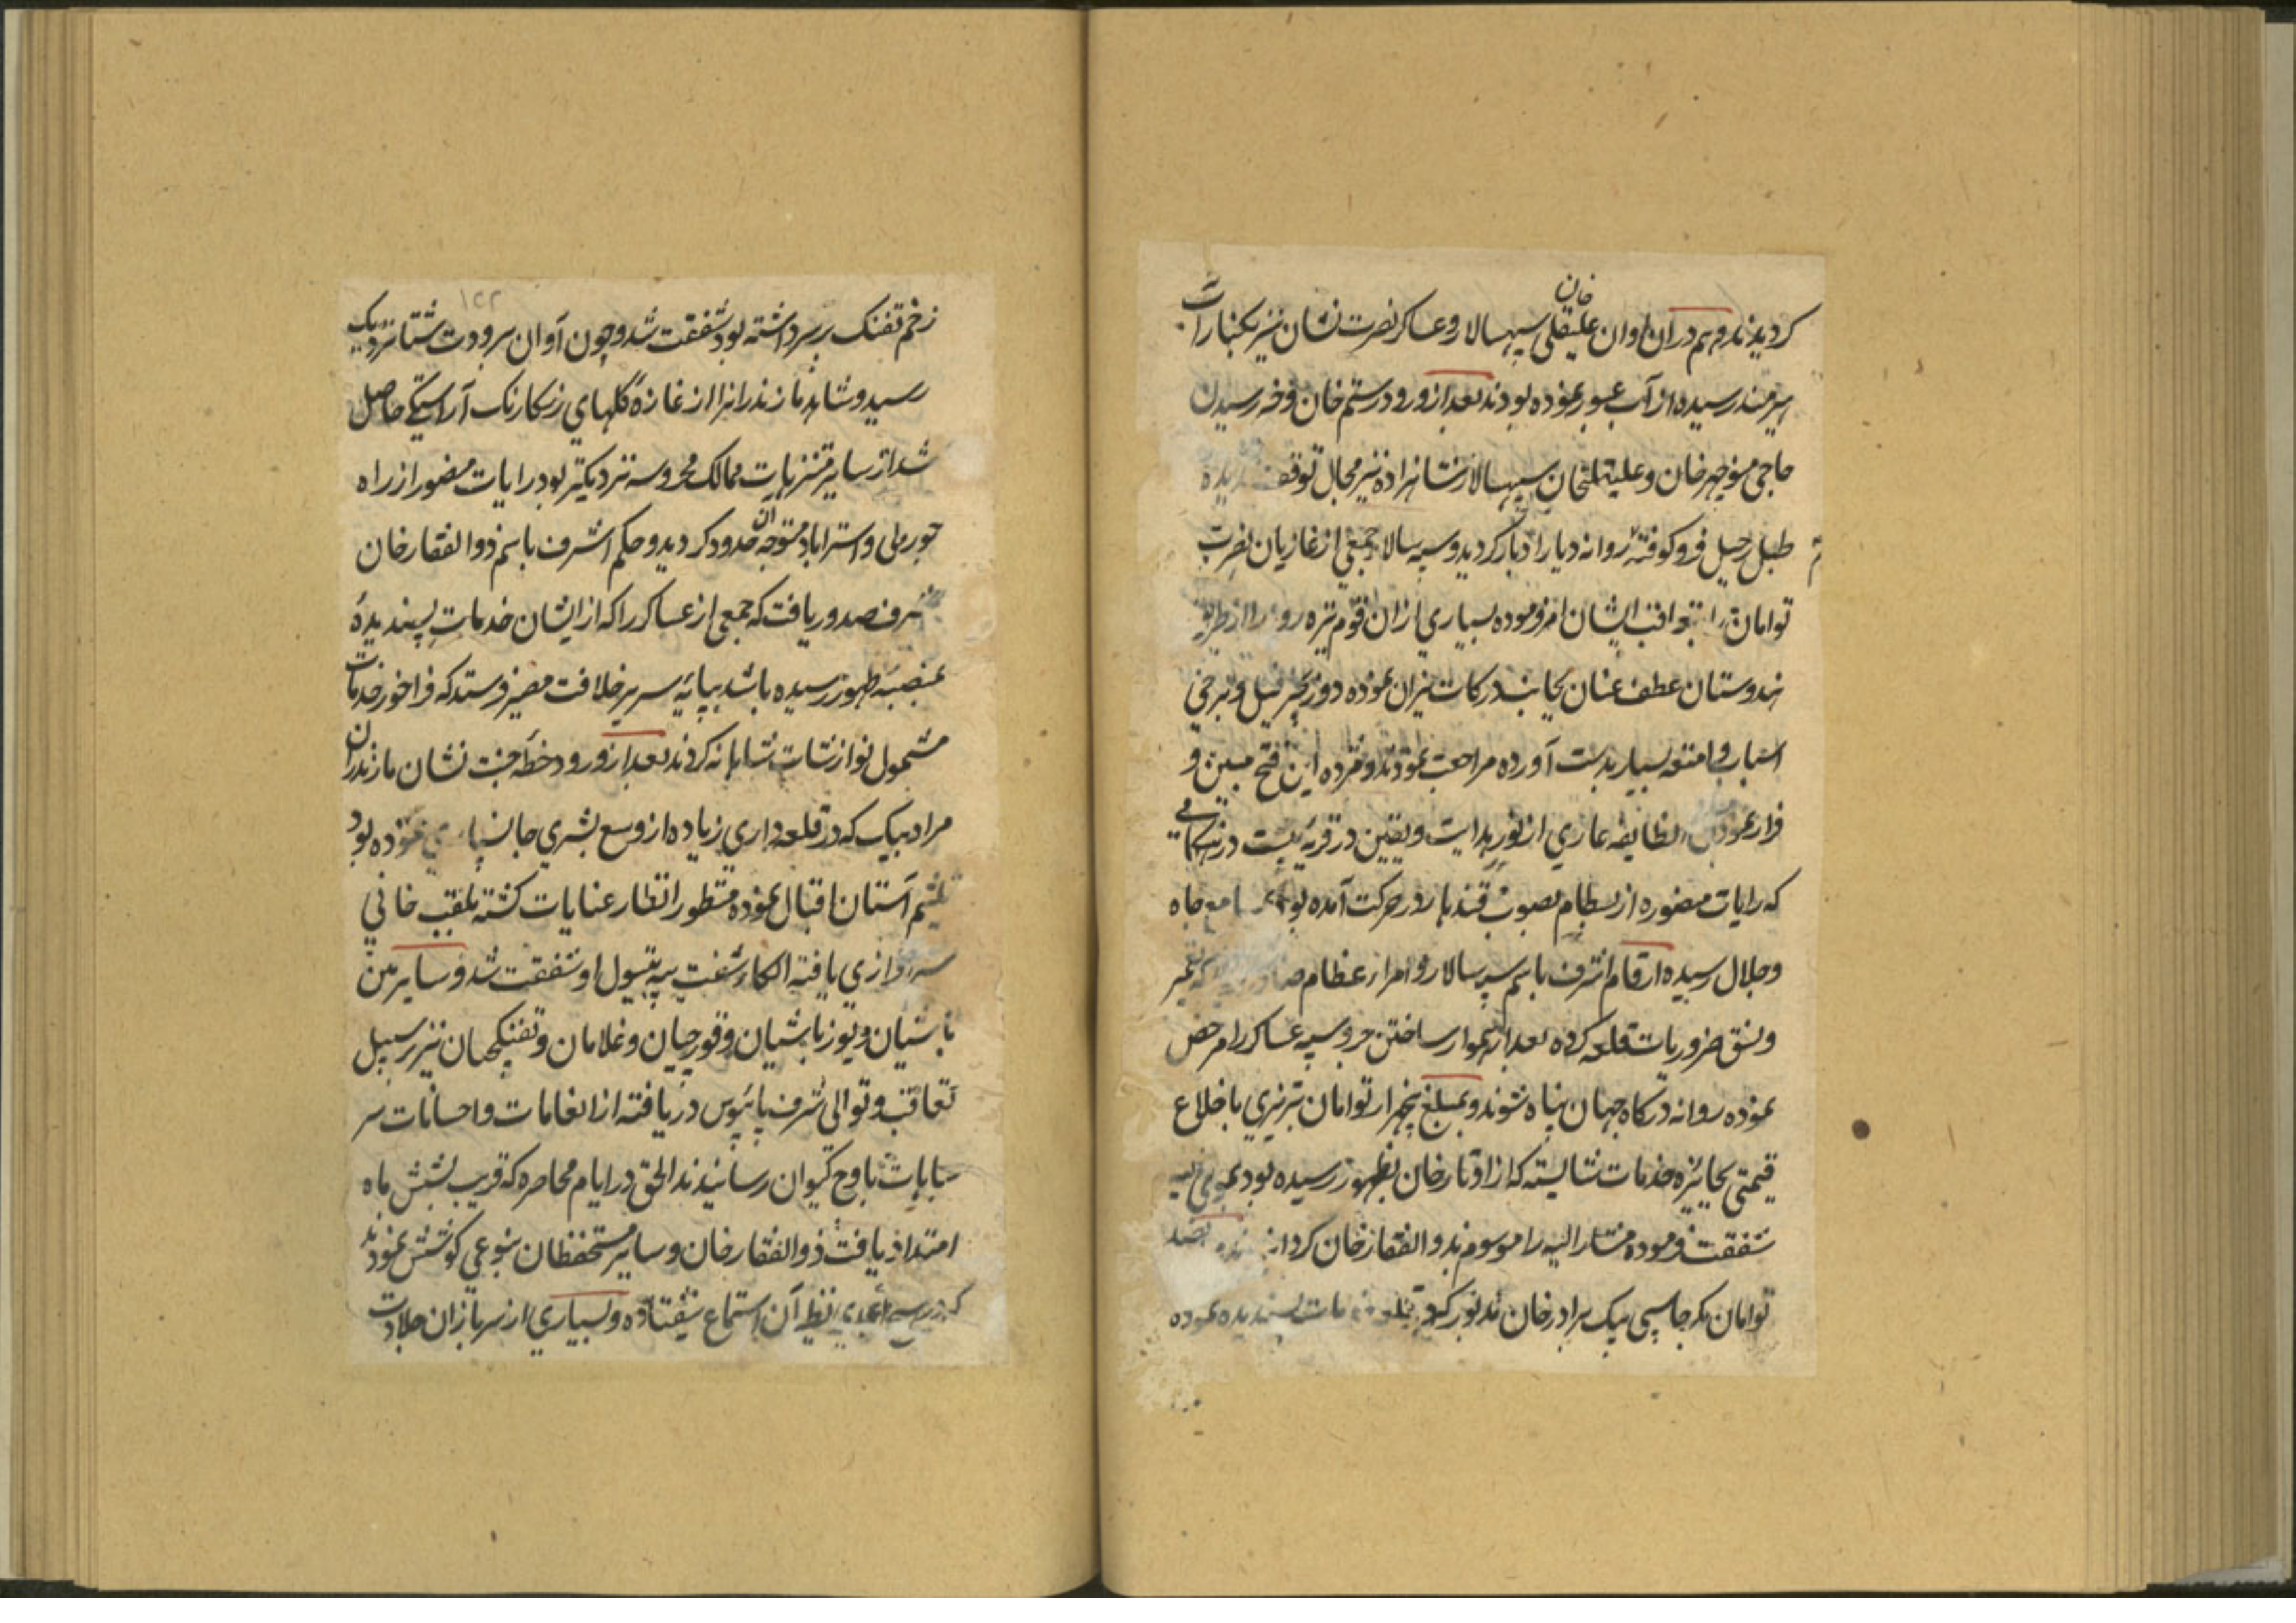 کردیدند و هم دران اوان علیقلی خان سپهسالار و عساکر نصرت نشان نیز بکنار آب
هیرمند رسیده از آب عبور نموده بودند بعد از ورود رستم خان و خبر رسیدن
حاجی منوچهر خان و علیقلیخان سپهسالار شاهزاده نیز مجال توقف ندیده
طبل رحیل فرو کوفته روانه دیار ادبار کردید و سپه سالار جمعی از غازیان نصرت
توامان را بتعاقب ایشان امر فرموده بسیاری ازان قوم تیره روز را از طریق
هندوستان عطف عنان بجانب درکات نیران نموده دو زنجیر فیل و برخی
اسباب و امتعه بسیار بدست آورده مراجعت نمودند و مژده این فتح مبین و
فرار نمودن انطایفه عاری از نور هدایت و یقین در قریه بیست در هنکامی
که رایات منصوره از بسطام بصوب قندهار در حرکت آمده بود بمسامع جاه
و جلال رسیده ارقام اشرف باسم سپه سالار و امراء عظام صادر کردید که تعمیر
و نسق ضروریات قلعه کرده بعد از هموار ساختن جر و سیبه عساکر را مرخص
نموده روانه درکاه جهان پناه شوند و مبلغ پنجهزار تومان تبریزی با خلاع
قیمتی بجایزه خدمات شایسته که از اوتار خان بظهور رسیده بود بموی الیه
شفقت فرموده مشار الیه را موسوم بذوالفقار خان کردانیده و پانصد
تومان بکرجاسپی بیک برادر خان مذبور که در قلعه خدمات پسندیده نموده
زخم تفنک برداشته بود شفقت شد و چون آوان برودت شتا نزدیک
رسید و شاهد مازندرانرا از غازه کلهای رنکارنک آراستکی حاصل
شد از سایر متنزهات ممالک محروسه نزدیکتر بود رایات منصور از راه
جورملی و استراباد متوجه ان حدود کردید و حکم اشرف باسم ذوالفقار خان
شرف صدور یافت که جمعی از عساکر را که از ایشان خدمات پسندیده
بمنصه ظهور رسیده باشد بپایه سریر خلافت مصیر فرستد که فراخور خدمات
مشمول نوازشات شاهانه کردند بعد از ورود خطه جنت نشان مازندران
مراد بیک که در قلعه داری زیاده از وسع بشری جانسپاری نموده بود
تلثیم آستان اقبال نموده منظور انظار عنایات کشته بلقب خانی
سرافرازی یافته الکاء شفت به تیول او شفقت شد و سایر مین
باشیان و یوزباشیان و قورچیان و غلامان و تفنکچیان نیز بر سبیل
تعاقب و توالی شرف پایبوس دریافته از انعامات و احسانات سر
مباهات باوج کیوان رسانیدند الحق در ایام محاصره که قریب بشش ماه
امتداد یافت ذوالفقار خان و سایر مستحفظان بنوعی کوشش نمودند
که در هیچ عهدی نظیر آن استماع نیفتاده و بسیاری از سربازان جلادت